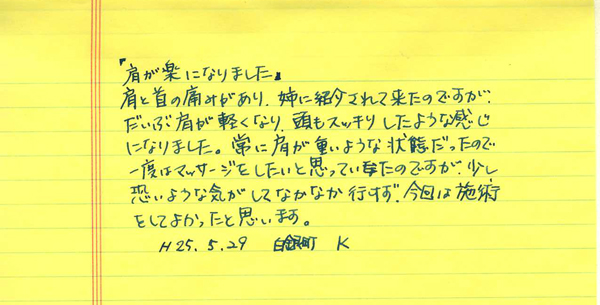 『肩が楽になりました』
肩と首の痛みがあり、姉に紹介されて来たのですが、
だいぶ肩が軽くなり、頭もスッキリしたような感じ
になりました。常に肩が重いような状態だったので
一度はマッサージをしたいと思っていたのですが、少し
恐いような気がしてなかなか行けず、今回は施術
をしてよかったと思います。
H25.5.29 白銀町 K